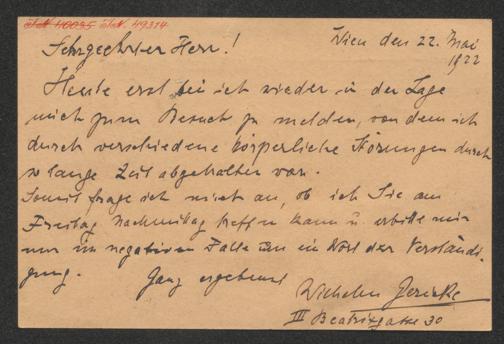 I.N. 40035 I.N. 49314
Wien den 22. Mai
1922
Sehrgeehrter Herr!
Heute erst bin ich wieder in der Lage
mich zum Besuch zu melden, von dem ich
durch verschiedene körperliche Störungen durch
so lange Zeit abgehalten war.
Somit frage ich mich an, ob ich Sie am
Freitag Nachmittag treffen kann u. erbitte mir
nur im negativen Falle ein Wort der Verständi-
gung.
Ganz ergebenst
Wilhelm
III Beatrixgasse 30